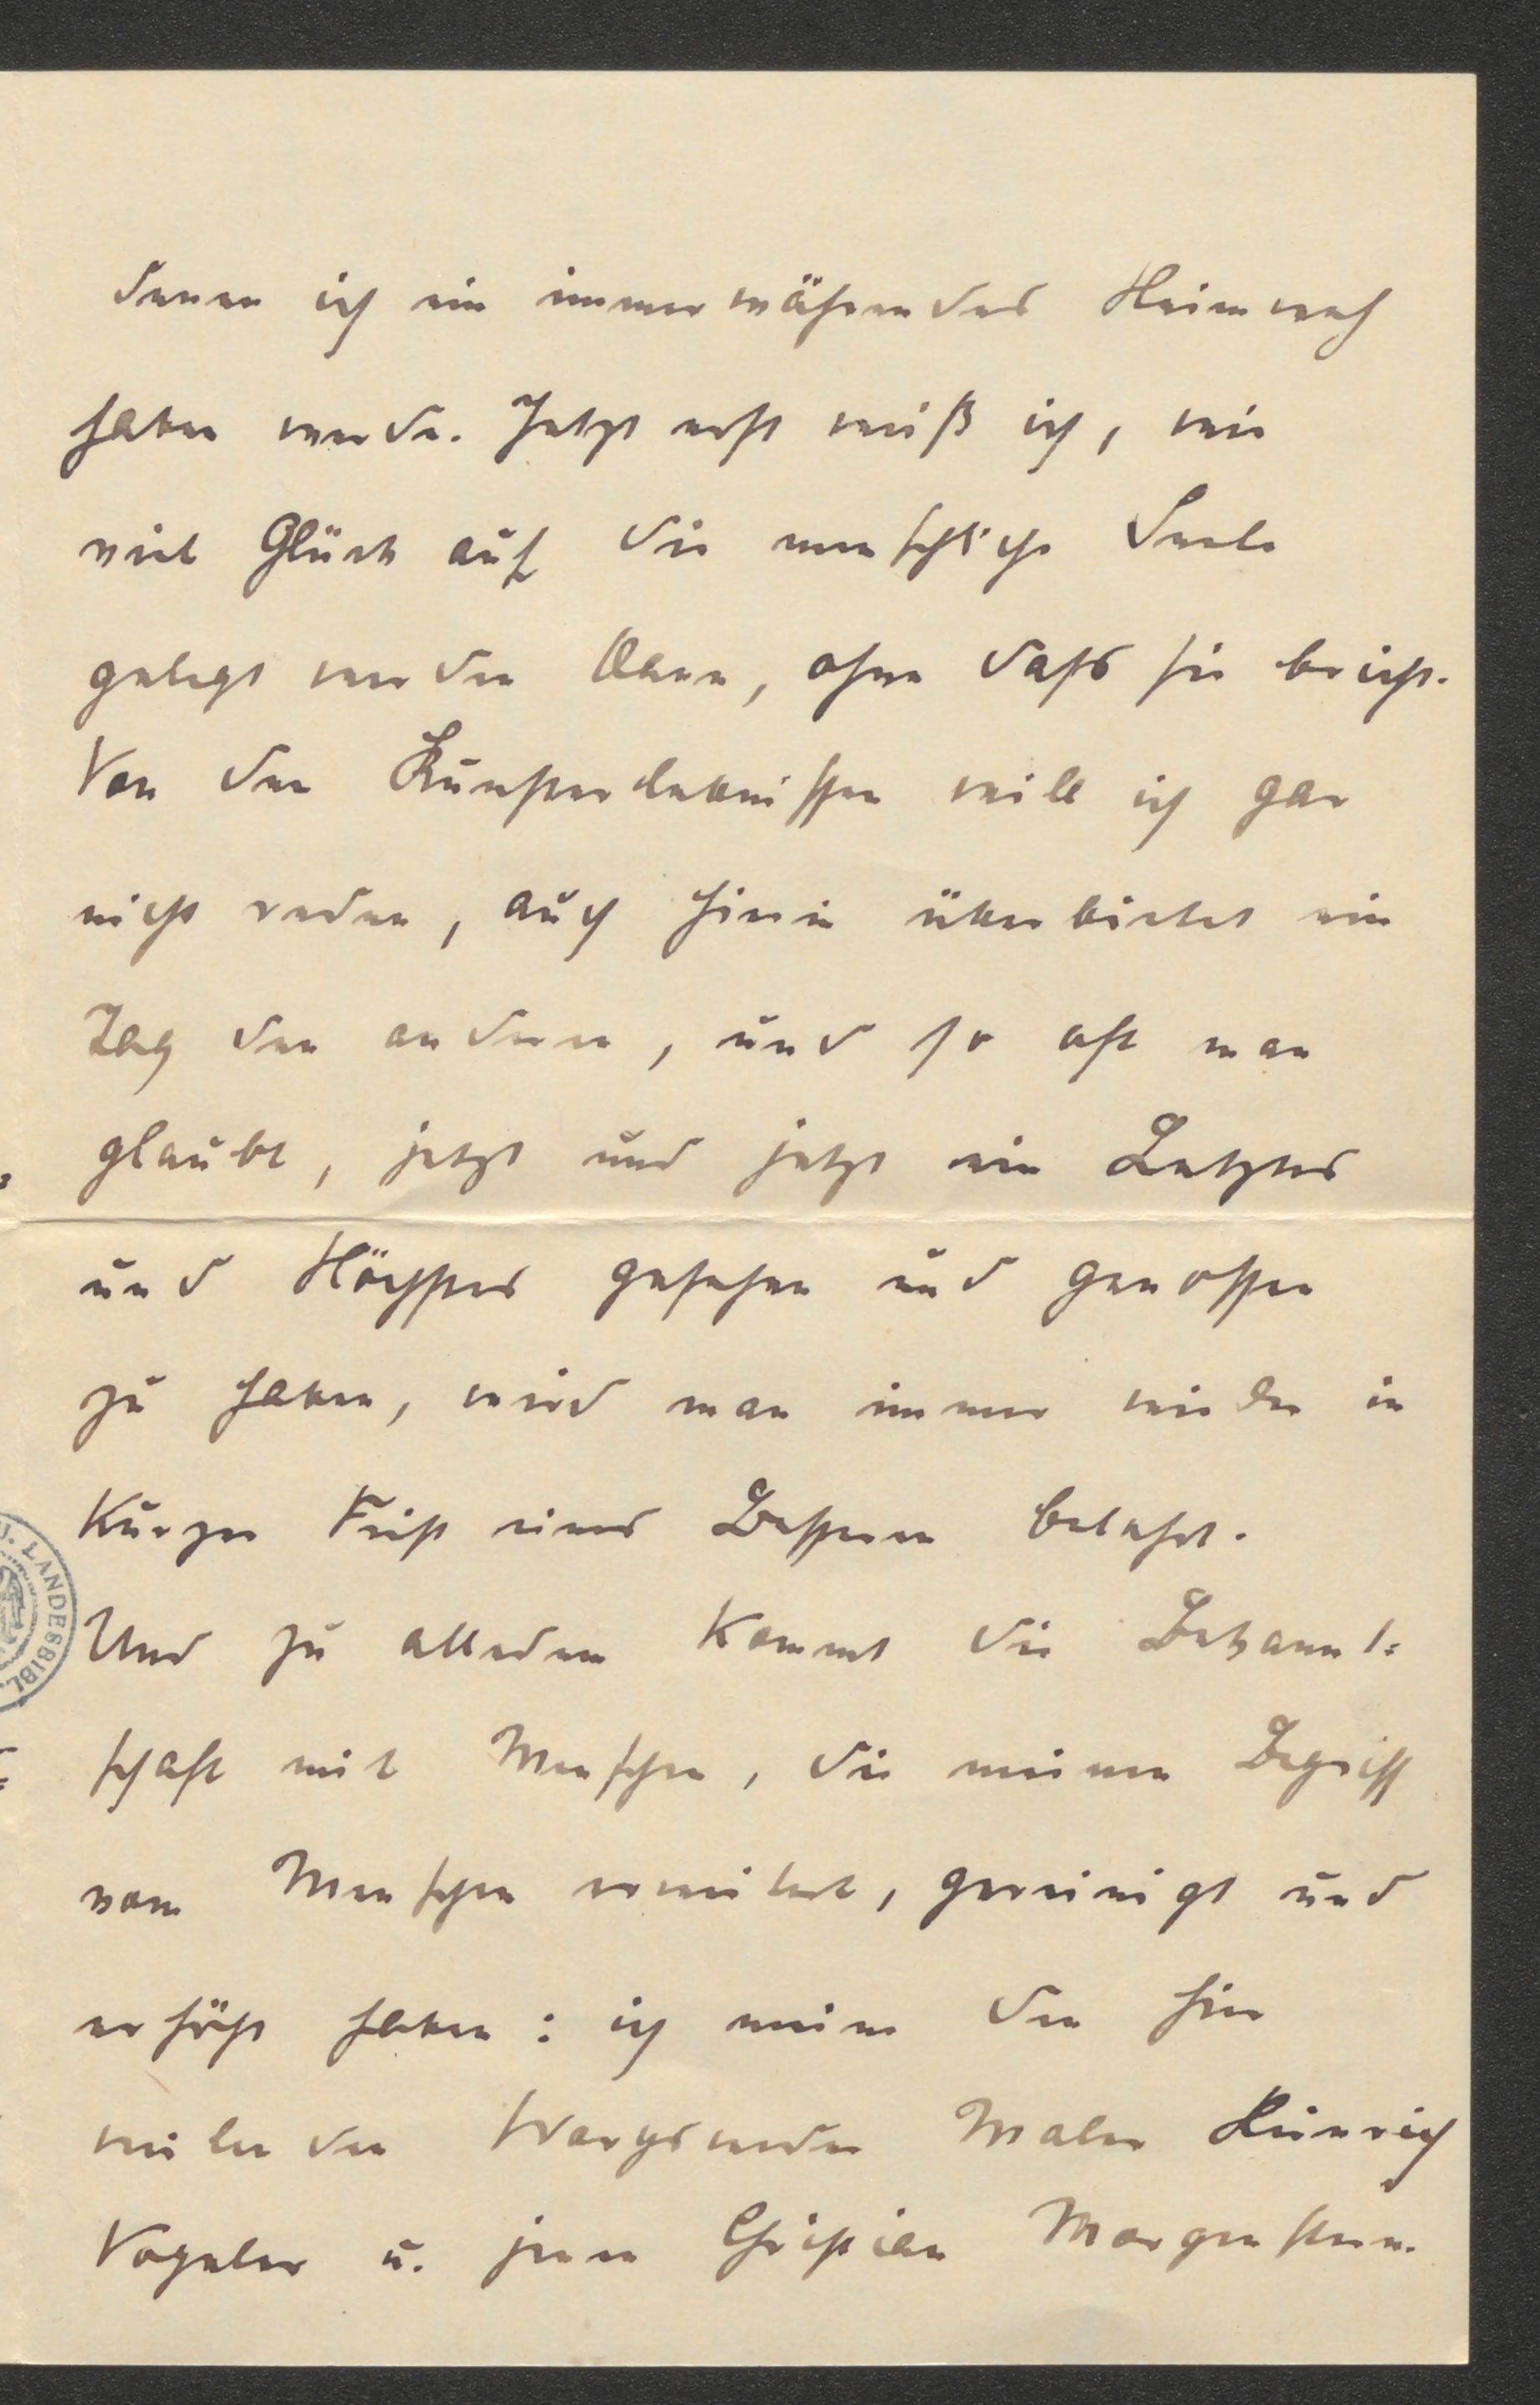 denen ich ein immerwährendes Heimweh
haben werde. Jetzt erst weiß ich, wie
viel Glück auf die menschliche Seele
gelegt werden kann, ohne dass sie bricht.
Von den Kunsterlebnissen will ich gar
nicht reden, auch hierin überbietet ein
Tag den anderen, und so oft man
glaubt, jetzt und jetzt ein Letztes
und Höchstes gesehen und genossen
zu haben, wird man immer wieder in
kurzer Frist eines Bessern belehrt.
Und zu alledem kommt die Bekannt=
schaft mit Menschen, die meinen Begriff
vom Menschen erweitert, gereinigt und
erhöht haben: ich meine den hier
weilenden Worpsweder Maler Heinrich
Vogeler u. jenen Christian Morgenstern.
U. LANDESBIBL.